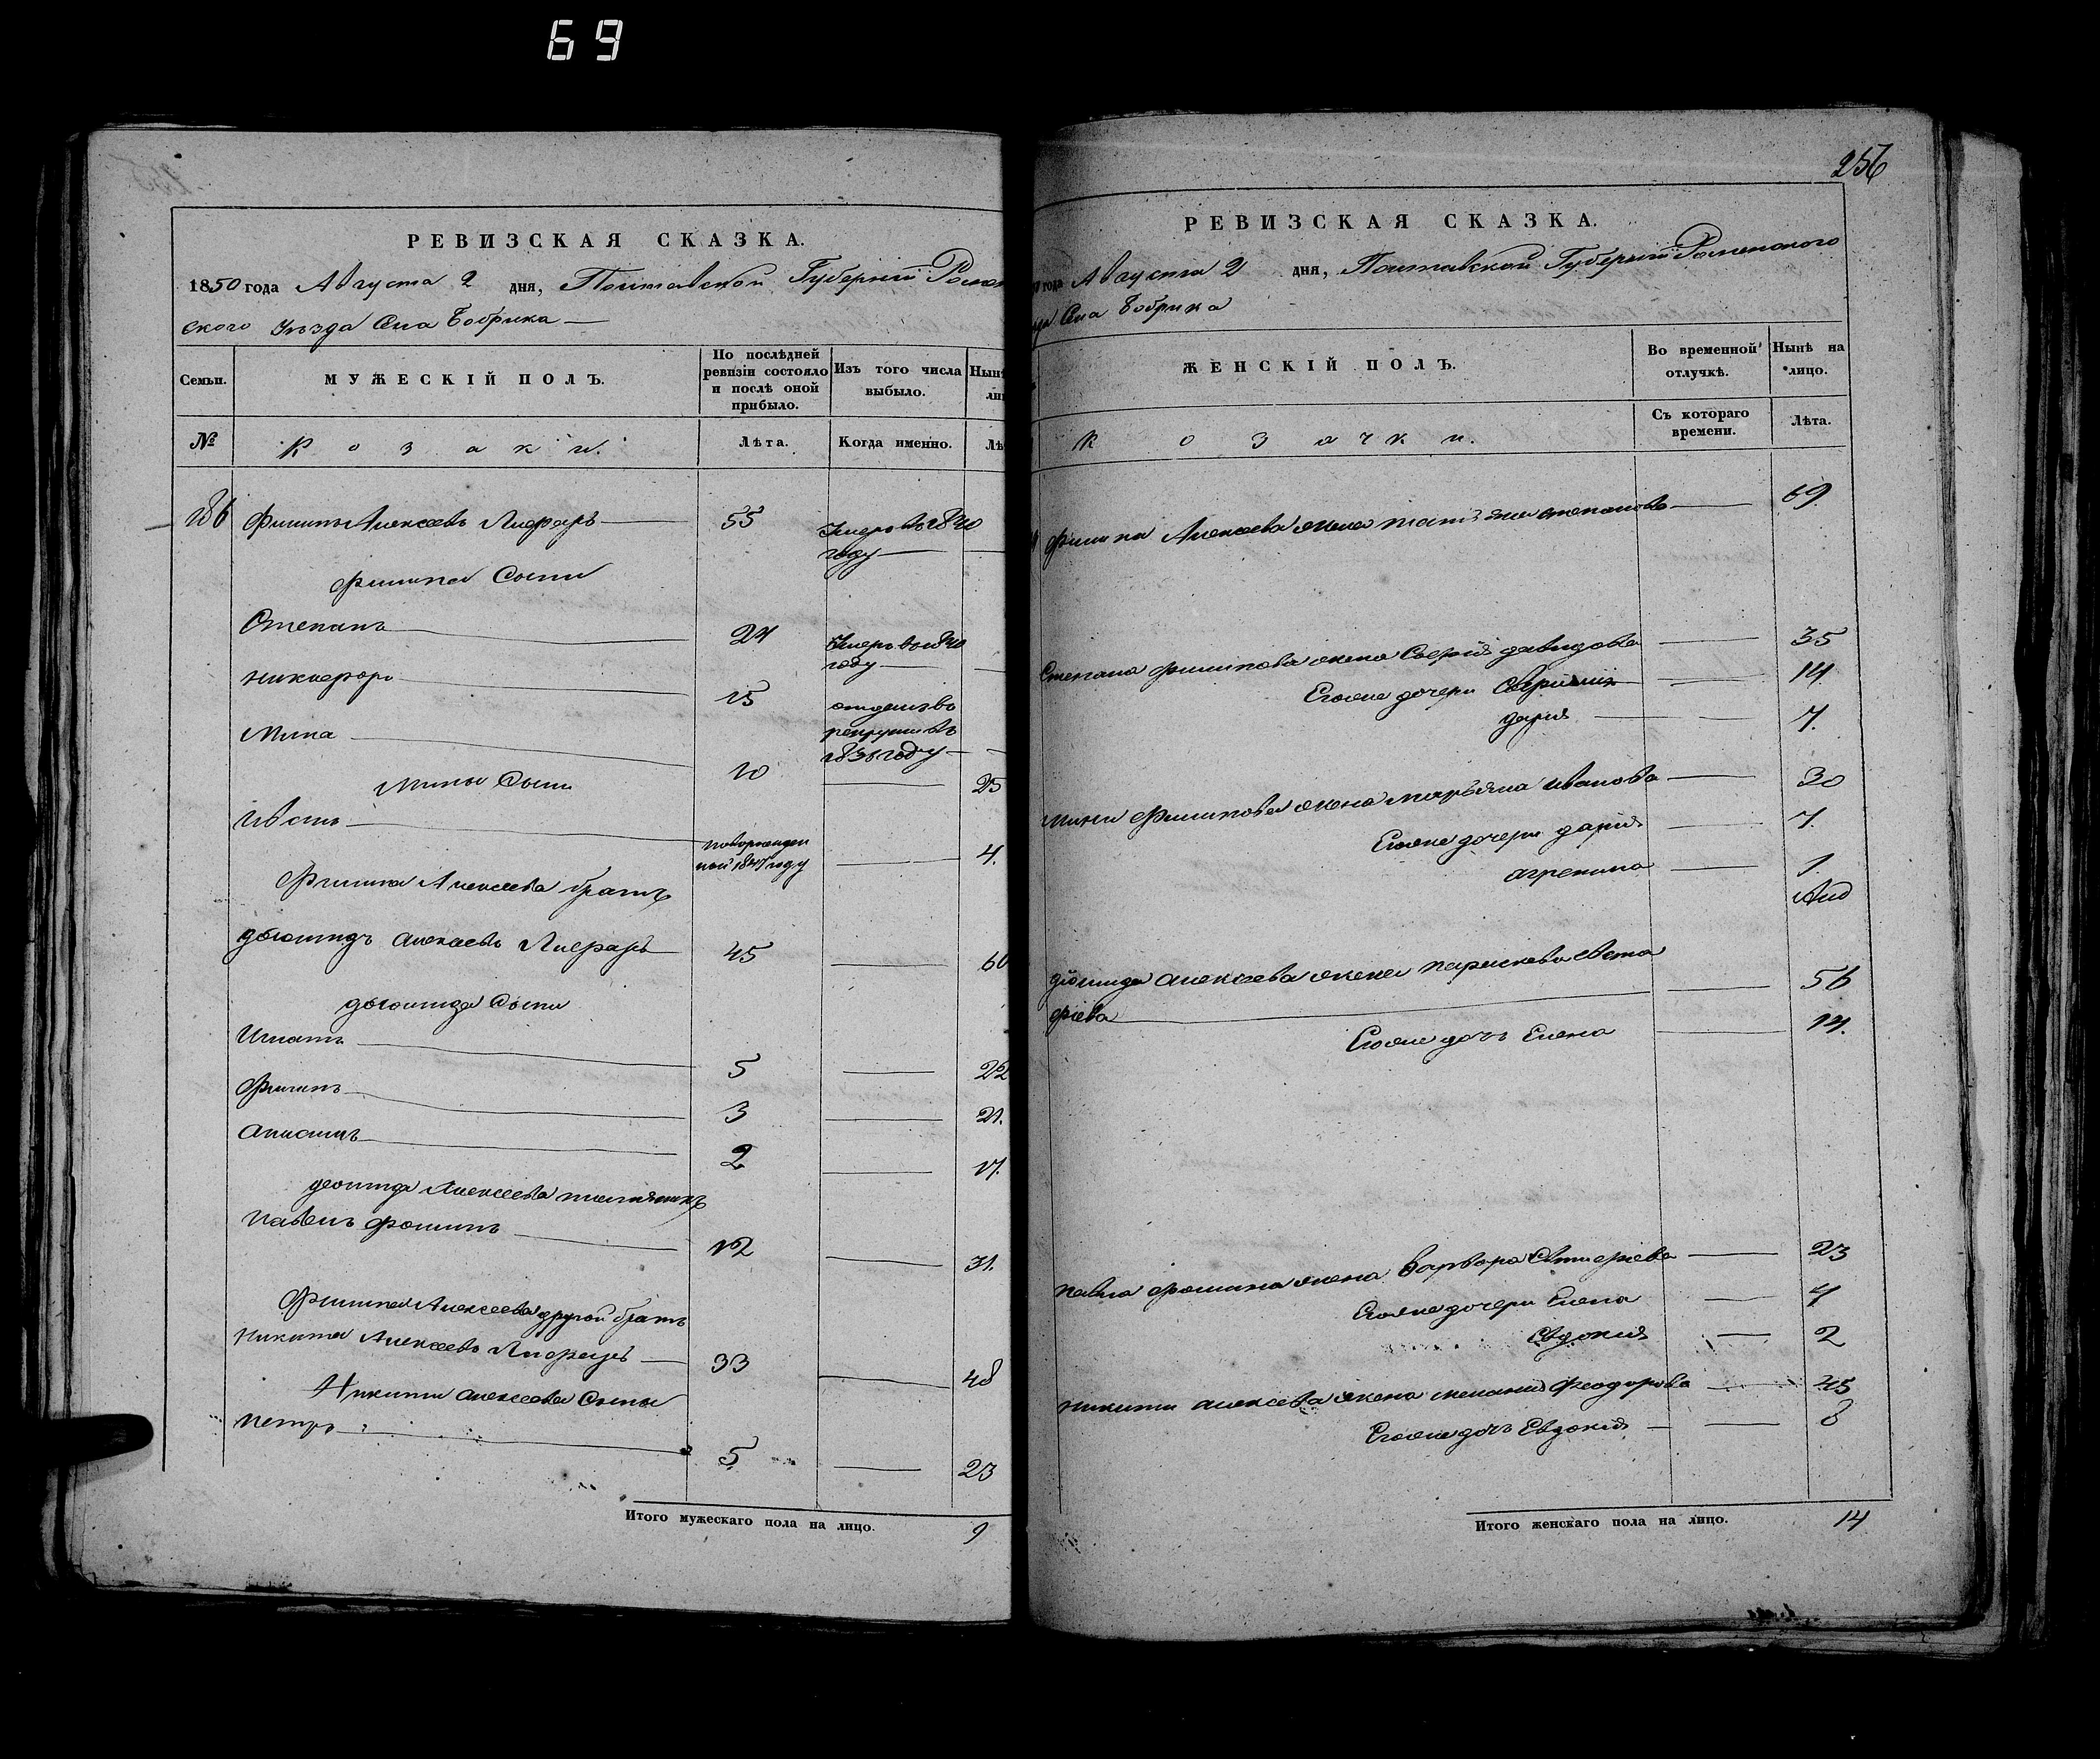 69
РЕВИЗСКАЯ СКАЗКА.
1850 года Августа 2 дня, Полтавской Губерніи Ромен
ского Уезда Села Бобрика
Семьи.
МУЖЕСКІЙ ПОЛЪ.
По послѣдней ревизіи состояло и послѣ оной прибыло.
Изъ того числа выбыло.
№
Козаки.
Лѣта.
Когда именно.
186 Филипъ Алексеевъ 55 Умеръ в 1840
году
Филипа Сыны
Степанъ 24 Умеръ в 1840
году
Никифоръ 15 отданъ въ
рекруты въ
году
Мина 10 25
Мины Сыны
Иванъ новорожден
ный 1847 году 4.
Филипа Алексеева братъ
Алексеевъ 45 60
Сыны
Игнатъ 5 22
Филипъ 3 21.
2 17.
Алексеева племянникъ
Павелъ Фоминъ 12 31.
Филипа Алексеева другой братъ
Никита Алексеевъ 33 48
Никиты Алексеева Сыны
Петръ 5 23
Итого мужескаго пола на лицо. 9
256
РЕВИЗСКАЯ СКАЗКА.
года Августа 2 дня, Полтавской Губерніи Роменского
Села Бобрика
ЖЕНСКІЙ ПОЛЪ.
Во временной отлучкѣ.
Нынѣ на лицо.
Козачки.
Съ котораго времени.
Лѣта.
Филипа Алексеева жена Степанова 69.
Степана Филипова жена Софія Давидова 35
Егоже дочери 14
Дарія 7.
Мины Филипова жена Марьяна Иванова 30
Егоже дочери Дарія 7.
Агрепина 1.
Алексеева жена Параскева Евста
фіева 56
Егоже дочь Елена 14.
Павла Фомина жена Варвара 23
Егоже дочери Елена 4
Евдокія 2
Никиты Алексеева жена Меланія Феодорова 45
Егоже дочь Евдокія 8
Итого женскаго пола на лицо. 14